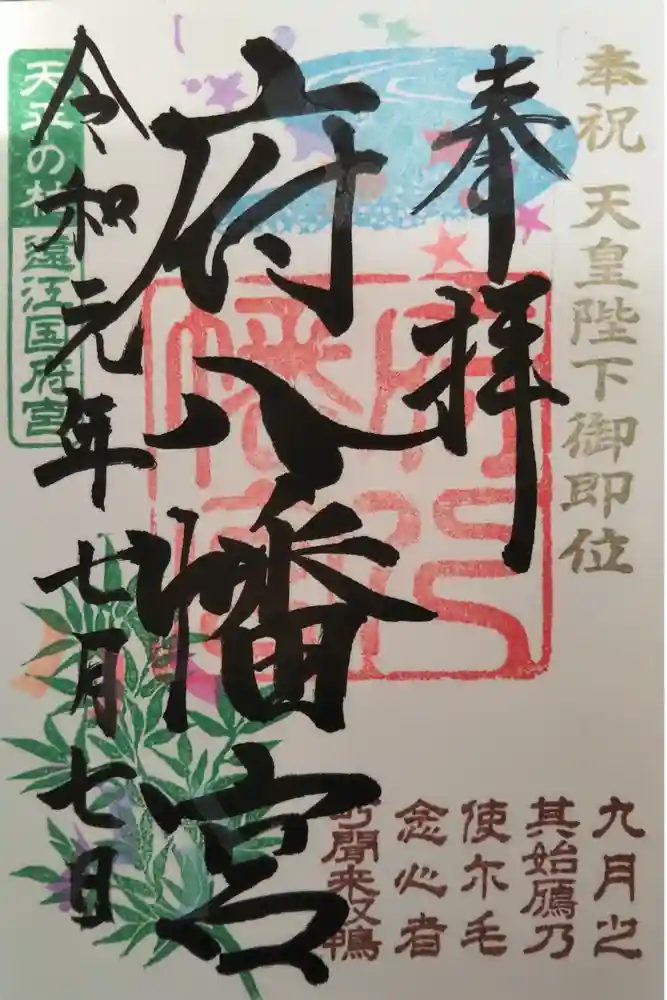 奉祝 天皇陛下御即位
奉拝
府八幡宮
府八
幡宮
令和元年七月七日
天平の杜
遠江国府宮
九月之
其始鴈乃
使尓毛
念心者
聞来奴鴨